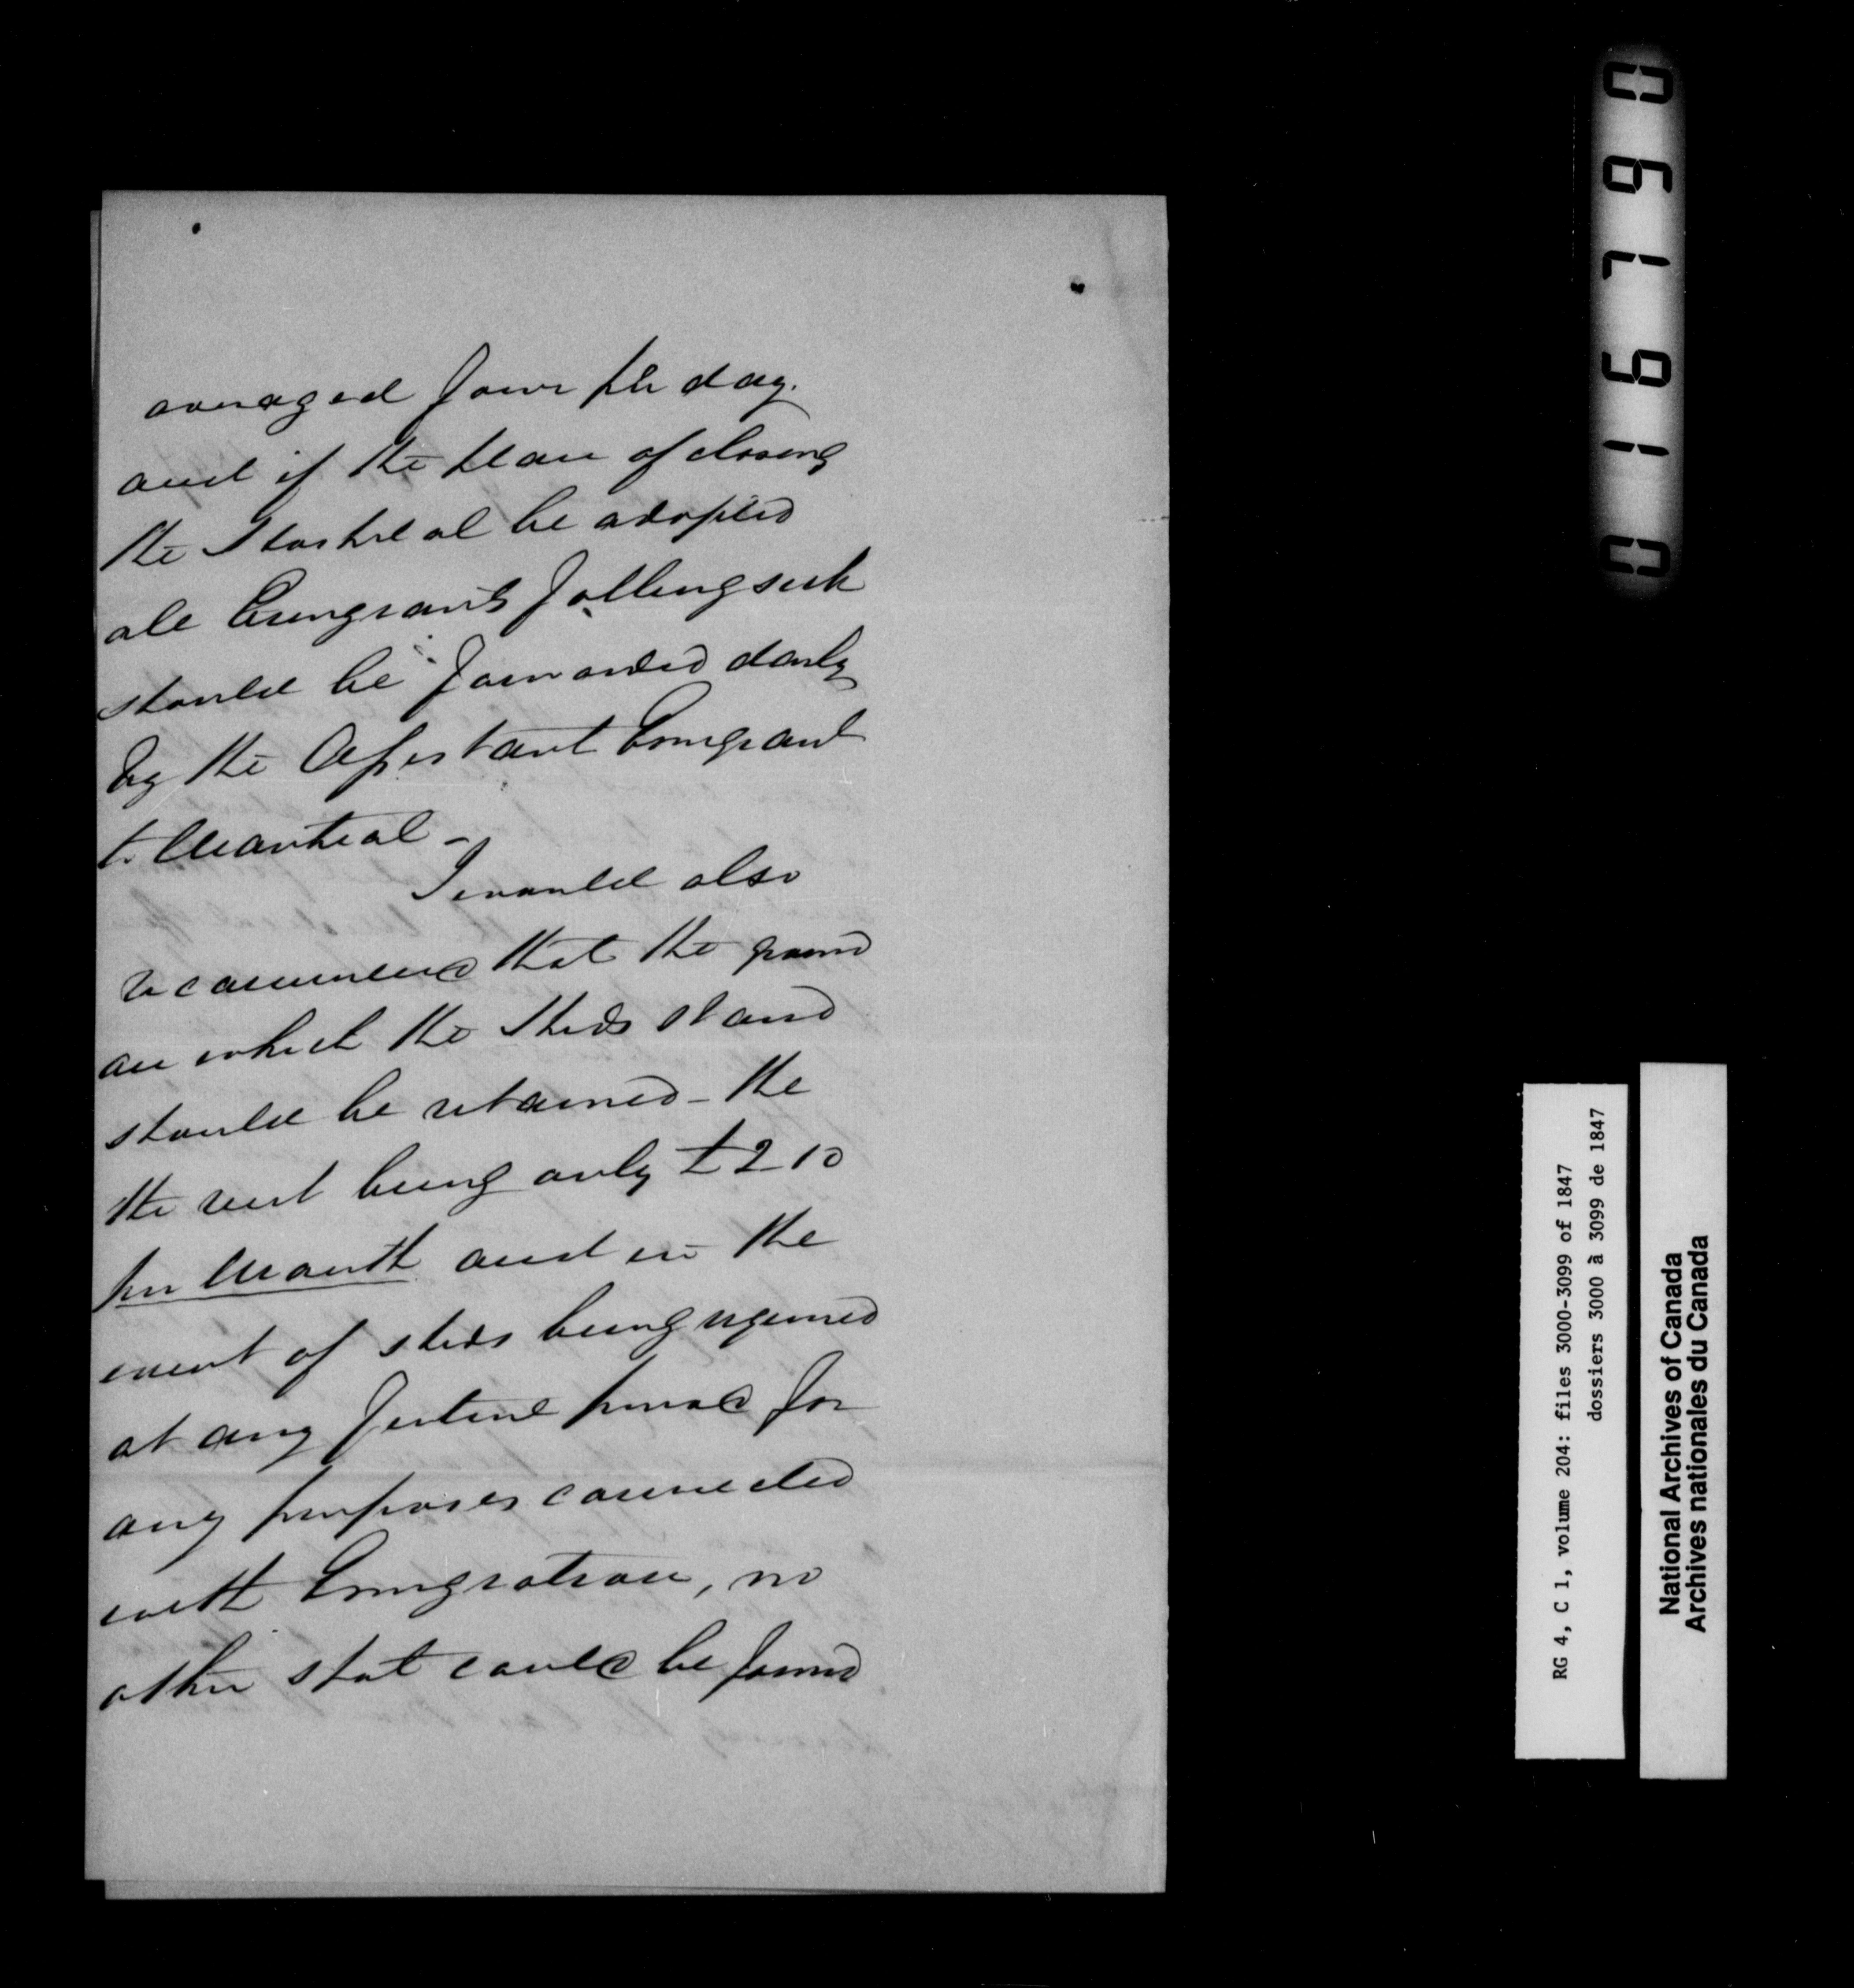 averaged four per day.
and if the plan of closing
the Hospital be adopted
all Emigrants falling sick
should be forwarded daily
by the Assistant Emigrant
to Montreal -
I would also
recommend that the ground
on which the Sheds stand
should be retained - the
the rent being only £2 10
per Month and in the
event of sheds being required
at any future period for
any purposes connected
with Emigration, no
other spot could be found
016790
RG 4, C 1, volume 204: files 3000-3099 of 1847
dossiers 3000 à 3099 de 1847
National Archives of Canada
Archives nationales du Canada